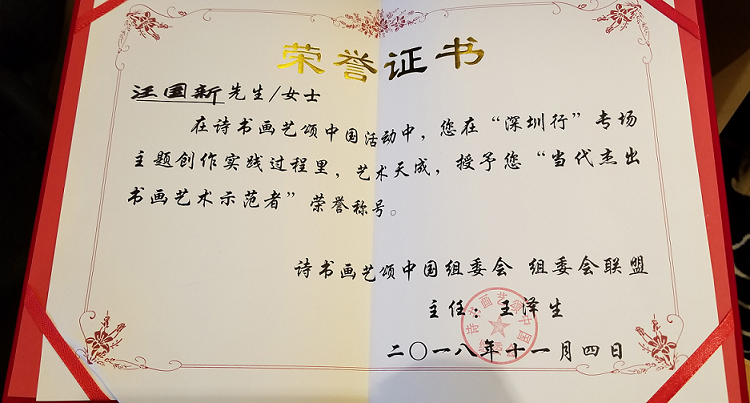 荣誉证书
汪国新先生/女士
在诗书画艺颂中国活动中，您在“深圳行”专场
主题创作实践过程里，艺术天成，授予您“当代杰出
书画艺术示范者”荣誉称号。
诗书画艺颂中国组委会 组委会联盟
主任：王泽生
二〇一八年十一月四日